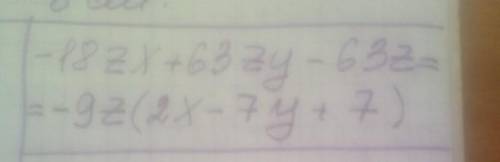 -18zx+63zy-63z=
=-9z(2x-7y+7)